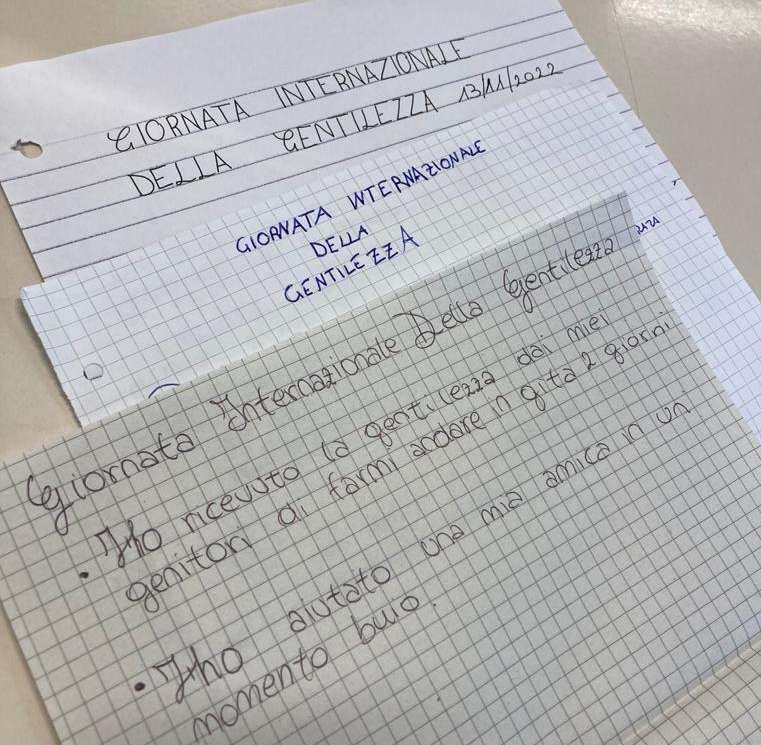 GIORNATA INTERNAZIONALE
DELLA GENTILEZZA 13/11/2022
GIORNATA INTERNAZIONALE
DELLA
GENTILEZZA
Giornata Internazionale Della Gentilezza
• Ho ricevuto la gentilezza dai miei
genitori di farmi andare in gita 2 giorni
• Ho aiutato una mia amica in un
momento buio.